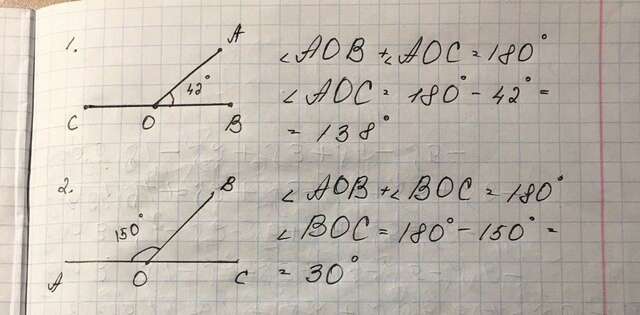 1.
A
42°
C O B
∠AOB + ∠AOC = 180°
∠AOC = 180° - 42° =
= 138°
2.
B
150°
A O C
∠AOB + ∠BOC = 180°
∠BOC = 180° - 150° =
= 30°